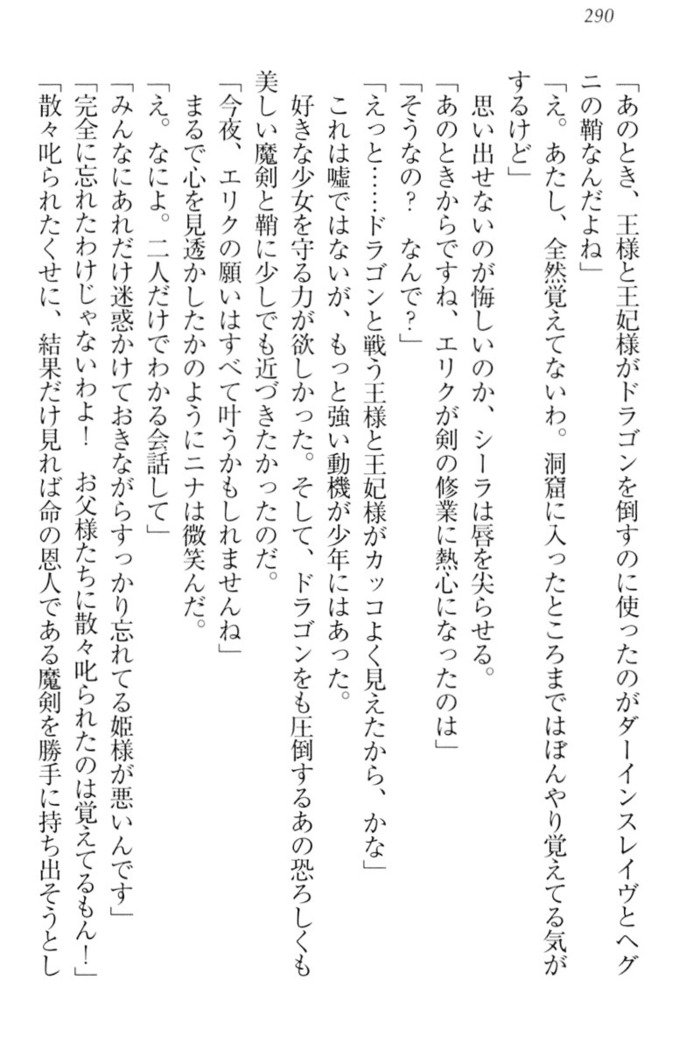 290
「あのとき、王様と王妃様がドラゴンを倒すのに使ったのがダーインスレイヴとヘグ
ニの鞘なんだよね」
「え。あたし、全然覚えてないわ。洞窟に入ったところまではぼんやり覚えてる気が
するけど」
思い出せないのが悔しいのか、シーラは唇を尖らせる。
「あのときからですね、エリクが剣の修業に熱心になったのは」
「そうなの？　なんで？」
「えっと……ドラゴンと戦う王様と王妃様がカッコよく見えたから、かな」
これは嘘ではないが、もっと強い動機が少年にはあった。
好きな少女を守る力が欲しかった。そして、ドラゴンをも圧倒するあの恐ろしくも
美しい魔剣と鞘に少しでも近づきたかったのだ。
「今夜、エリクの願いはすべて叶うかもしれませんね」
まるで心を見透かしたかのようにニナは微笑んだ。
「え。なによ。二人だけでわかる会話して」
「みんなにあれだけ迷惑かけておきながらすっかり忘れてる姫様が悪いんです」
「完全に忘れたわけじゃないわよ！　お父様たちに散々叱られたのは覚えてるもん！」
「散々叱られたくせに、結果だけ見れば命の恩人である魔剣を勝手に持ち出そうとし